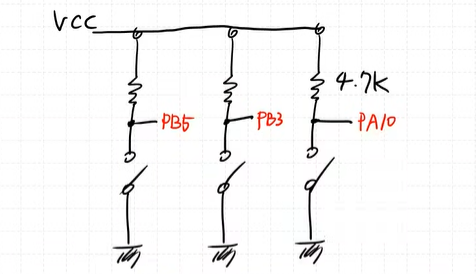 VCC
4.7K
PB5
PB3
PA10